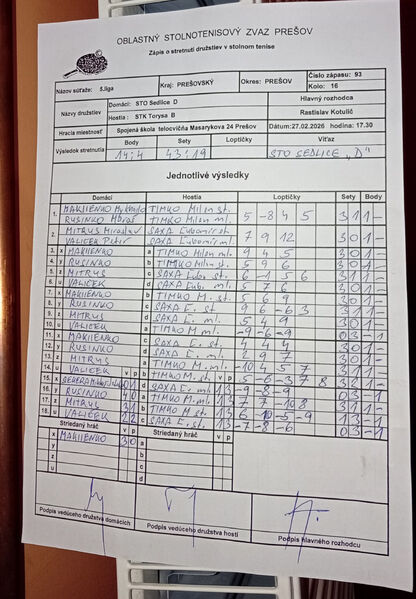 OBLASTNÝ STOLNOTENISOVÝ ZVAZ PREŠOV
Zápis o stretnutí družstiev v stolnom tenise
Názov súťaže: 5.liga Kraj: PREŠOVSKÝ Okres: PREŠOV Číslo zápasu: 93
Kolo: 16
Názvy družstiev Domáci: STO Sedlice D Hlavný rozhodca
Hostia: STK Torysa B Rastislav Kotulič
Hracia miestnosť Spojená škola telocvičňa Masarykova 24 Prešov Dátum:27.02.2026 hodina: 17.30
Výsledok stretnutia Body Sety Loptičky Víťaz
14:4 43:19 STO SEDLICE "D"
Jednotlivé výsledky
Domáci Hostia Loptičky Sety Body
1. MAKIIENKO TIMKO Milan st.
RUSINKO TIMKO Milan ml. 5 -8 4 5 3 1 1 -
2. MITRUS Miroslav SAXA Ľubomír st.
VALIČEK Peter SAXA Ľubomír ml. 7 9 12 3 0 1 -
3. x MAKIIENKO a TIMKO Milan ml. 9 4 5 3 0 1 -
4. y RUSINKO b TIMKO Milan st. 5 9 6 3 0 1 -
5. z MITRUS c SAXA Ľub. st. 6 -1 5 6 3 1 1 -
6. u VALIČEK d SAXA Ľub. ml. 5 7 6 3 0 1 -
7. x MAKIIENKO b TIMKO M. st. 5 6 9 3 0 1 -
8. y RUSINKO c SAXA Ľ. st. 9 6 -6 3 3 1 1 -
9. z MITRUS d SAXA Ľ. ml. 5 4 9 3 0 1 -
10. u VALIČEK a TIMKO M. ml. -9 -6 -9 0 3 - 1
11. x MAKIIENKO c SAXA Ľ. st. 4 4 4 3 0 1 -
12. y RUSINKO d SAXA Ľ. ml. 2 9 7 3 0 1 -
13. z MITRUS a TIMKO M. ml. -10 4 5 7 3 1 1 -
14. u VALIČEK v p b TIMKO M. st. v p 5 -6 -3 7 8 3 2 1 -
15. x 0 1 d SAXA Ľ. ml. 1 3 -9 -8 -9 0 3 - 1
16. y RUSINKO 4 0 a TIMKO M. ml. 1 3 7 7 -10 8 3 1 1 -
17. z MITRUS 3 1 b TIMKO M. st. 1 3 6 -10 -5 -9 1 3 - 1
18. u VALIČEK 1 3 c SAXA Ľ. st. 1 3 -7 -8 -6 0 3 - 1
Striedaný hráč v p Striedaný hráč v p
x MAKIIENKO 3 0 a
y b
z c
u d
Podpis vedúceho družstva domácich Podpis vedúceho družstva hostí Podpis hlavného rozhodcu